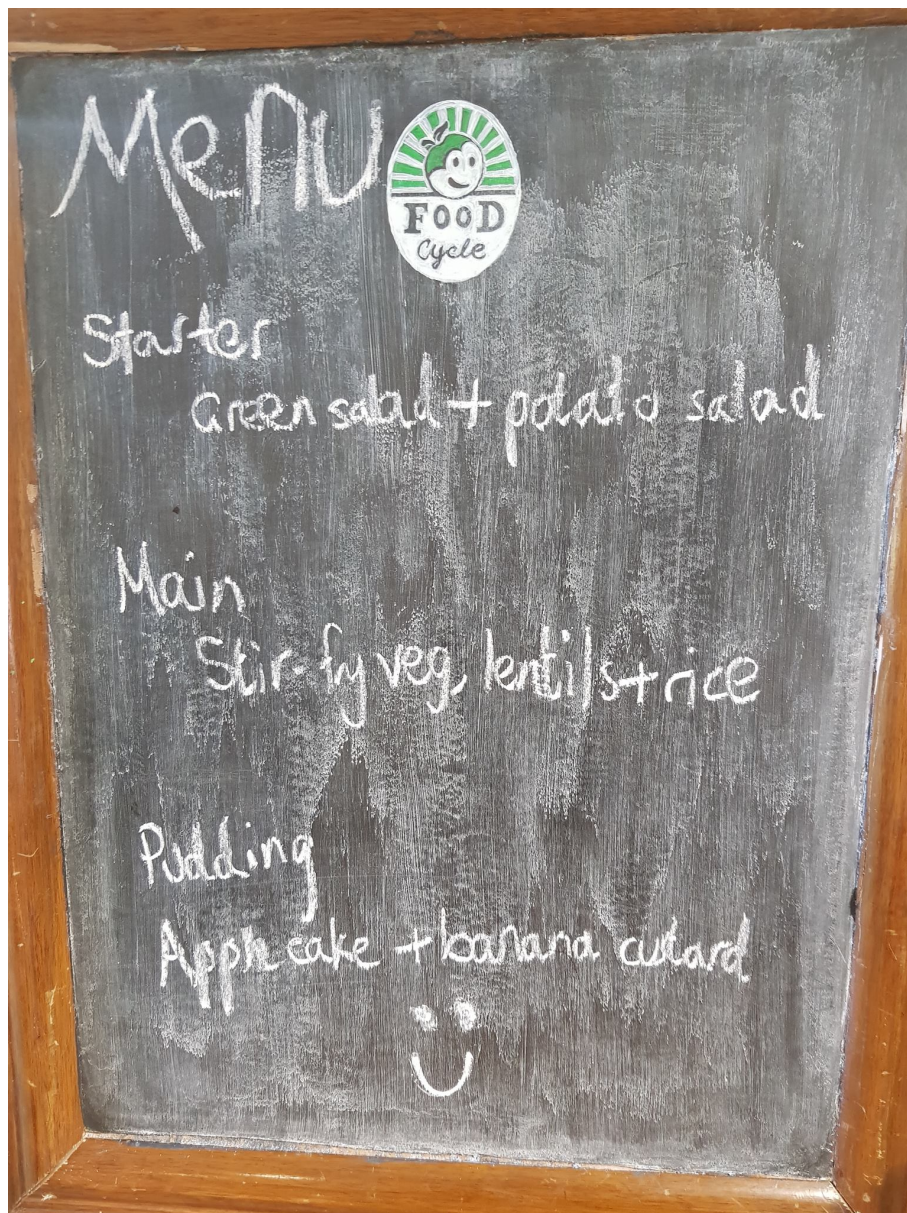 Menu
FOOD
Cycle
Starter
Green salad + potato salad
Main
Stir-fy veg, lentils + rice
Pudding
Apple cake + banana custard